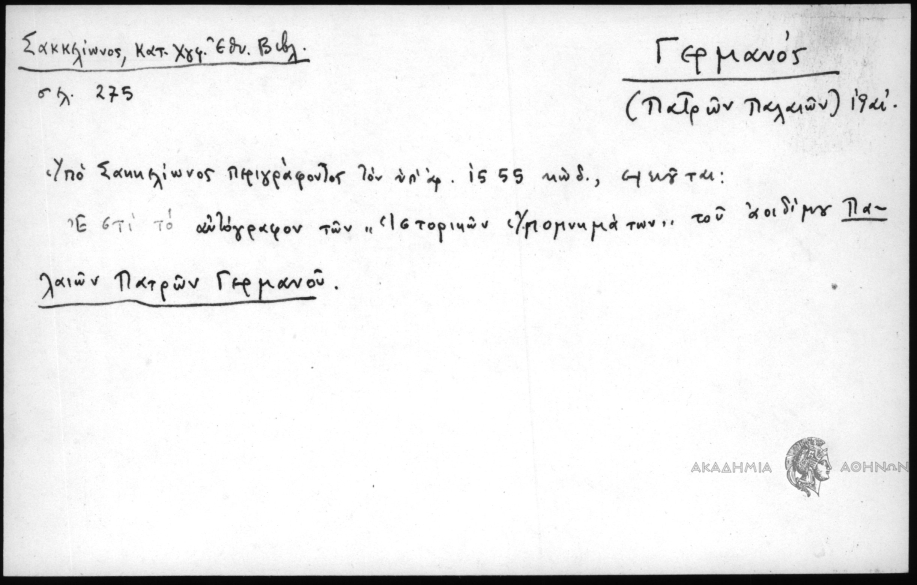 Σακκελίωνος, Κατ. Χγφ. Ἐθν. Βιβλ.
σελ. 275
Γερμανός
(Πατρῶν Παλαιῶν) ιθαι.
Ὑπό Σακκελίωνος περιγράφοντος τόν ὑπ' ἀρ. 1555 κώδ., σημ̂ται:
Ἐστί τό αὐτόγραφον τῶν „Ἱστορικῶν Ὑπομνημάτων" τοῦ ἀοιδίμου Πα-
λαιῶν Πατρῶν Γερμανοῦ.
ΑΚΑΔΗΜΙΑ ΑΘΗΝΩΝ